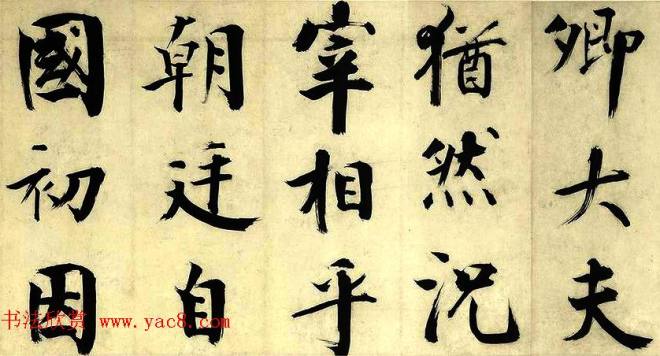 卿大夫
猶然況
宰相乎
朝廷自
國初因
书法欣赏 www.yac8.com